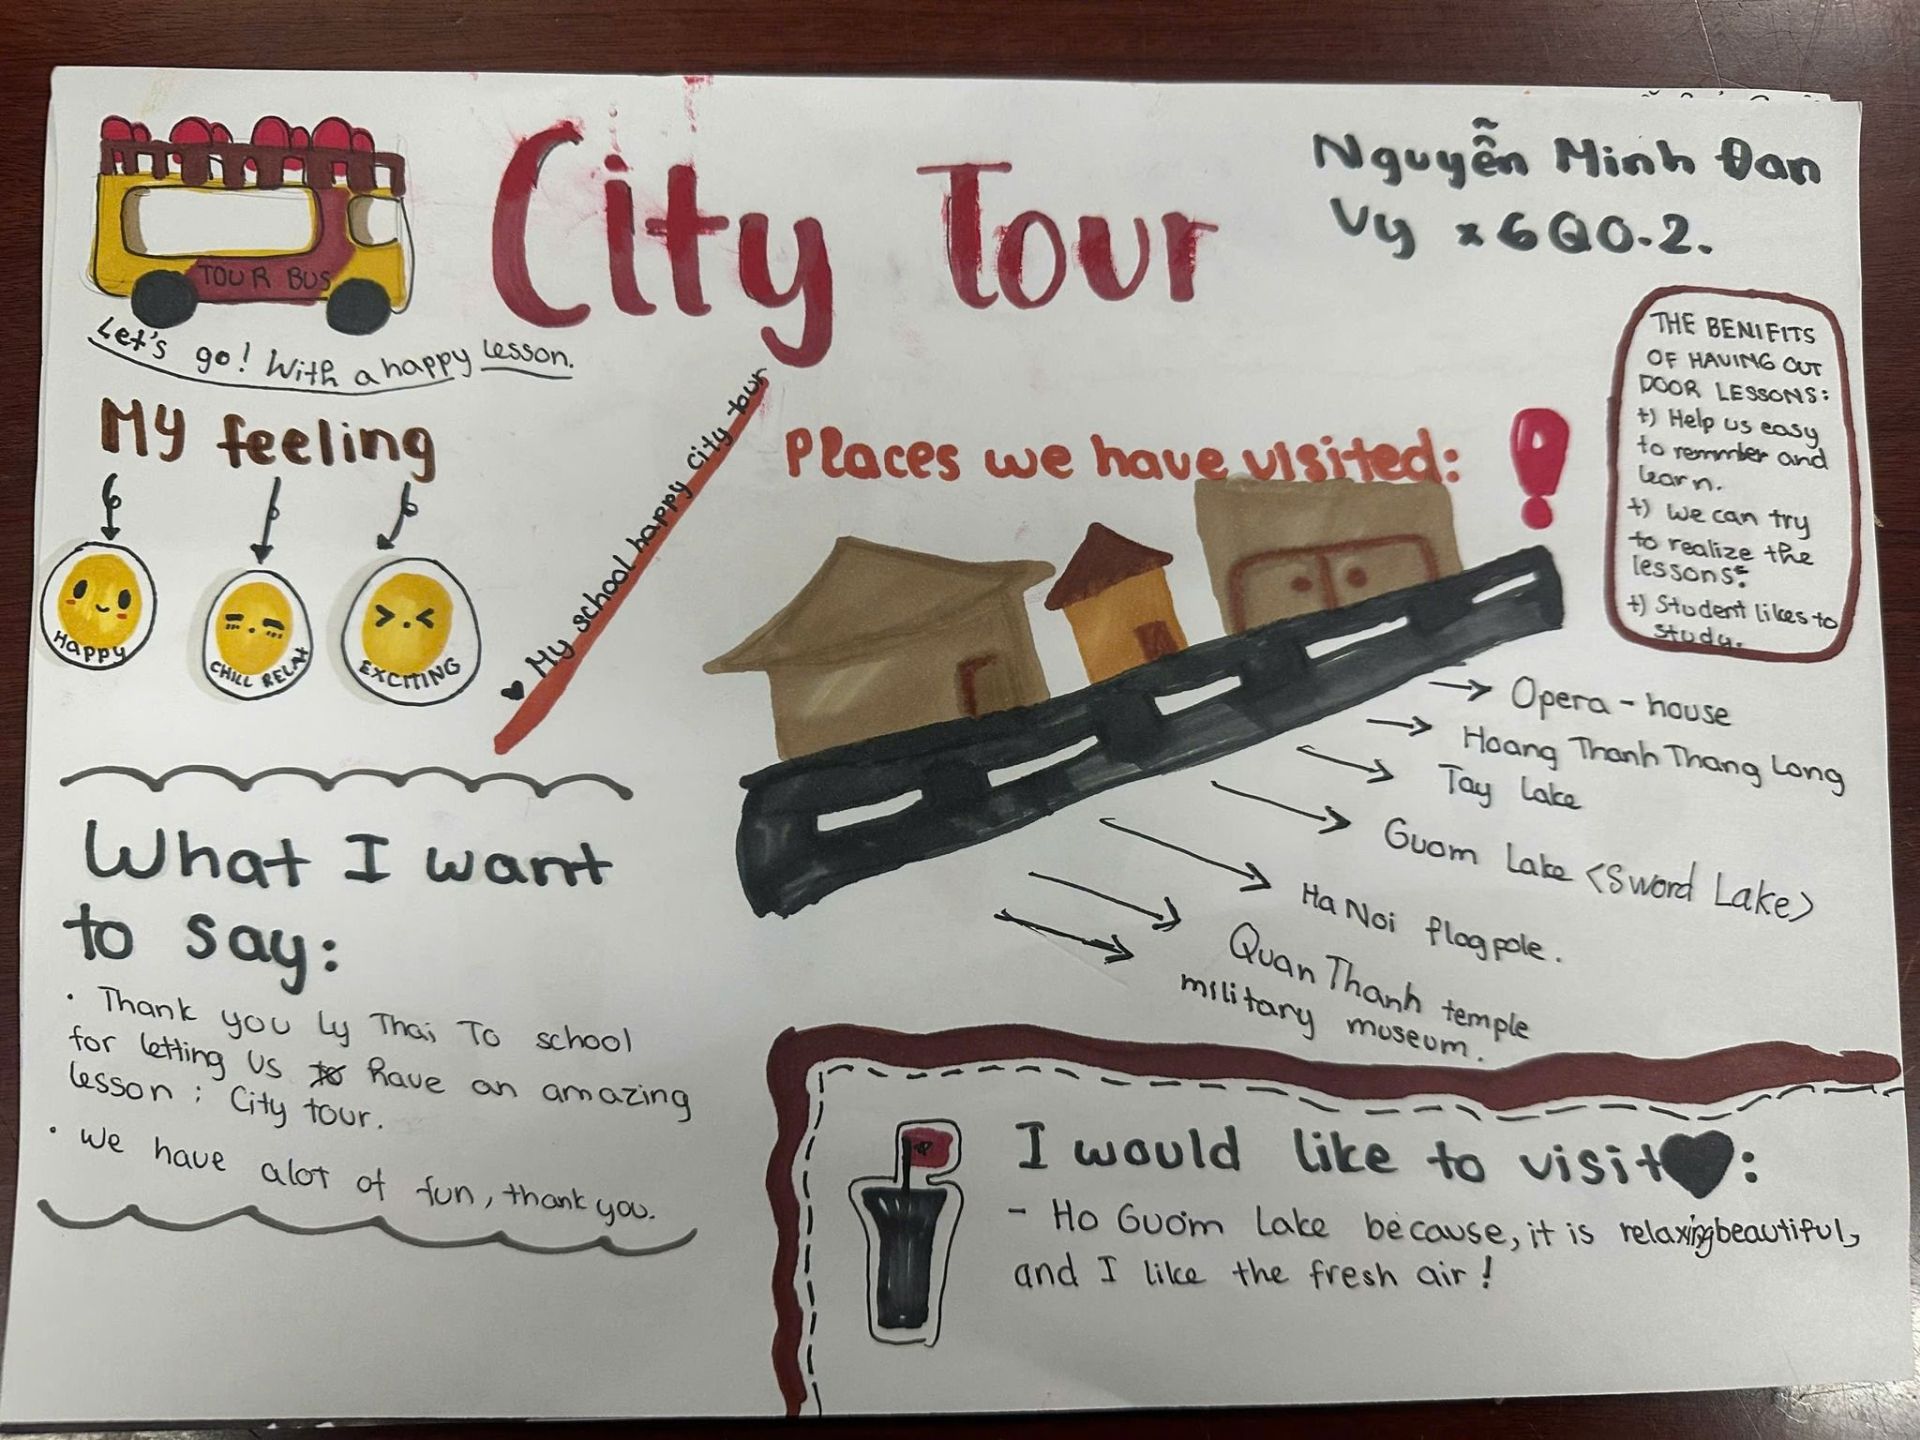 City Tour
Nguyễn Minh Đan
Vy x 6QO.2.
TOUR BUS
Let's go! With a happy lesson.
My feeling
Happy
CHILL RELAX
EXCITING
♥ My school happy city tour
Places we have visited:
THE BENIFITS
OF HAVING OUT
DOOR LESSONS:
+) Help us easy
to remmber and
learn.
+) We can try
to realize the
lessons.
+) Student likes to
study.
→ Opera - house
→ Hoang Thanh Thang Long
→ Tay Lake
→ Guom Lake <Sword Lake>
→ Ha Noi flagpole.
→ Quan Thanh temple
→ military museum.
What I want
to say:
• Thank you Ly Thai To school
for letting us to have an amazing
lesson : City tour.
• We have alot of fun, thank you.
I would like to visit♥:
- Ho Guom Lake because, it is relaxing beautiful,
and I like the fresh air!